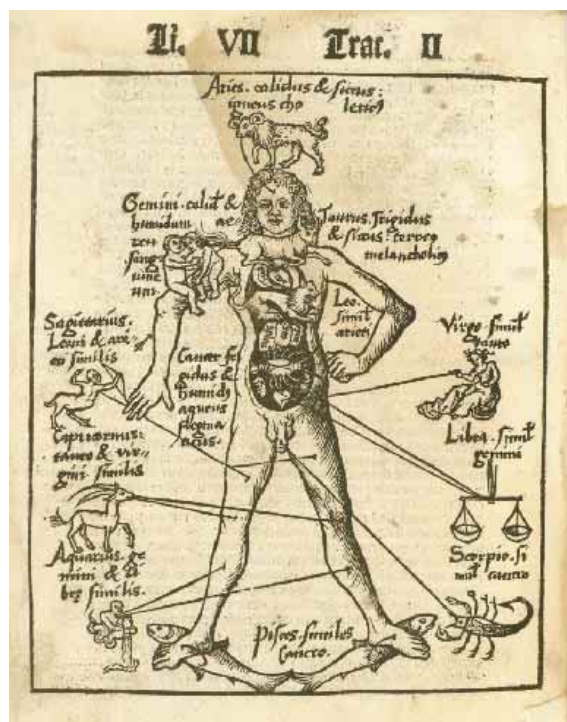 Li. VII Trac. II
Aries. calidus & siccus:
igneus cho lericꝰ
Gemini. calid &
humidum ae-
reu
sang
uine
um.
Taurus. frigidus
& siccus: terreꝰ
melancholicꝰ
Leo.
simil
arieti
Sagittarius.
Leoni & ari-
eti similis
Cancer fri
gidus &
humidꝰ
aqueus
flegma
Virgo. simil
tauro
Capricornus:
tauro & vir-
gini similis
Libra. simil
gemini
Aquarius. ge
mini & li
brę similis.
Scorpio. si
mil cancro
Pisces. similes
Cancro.